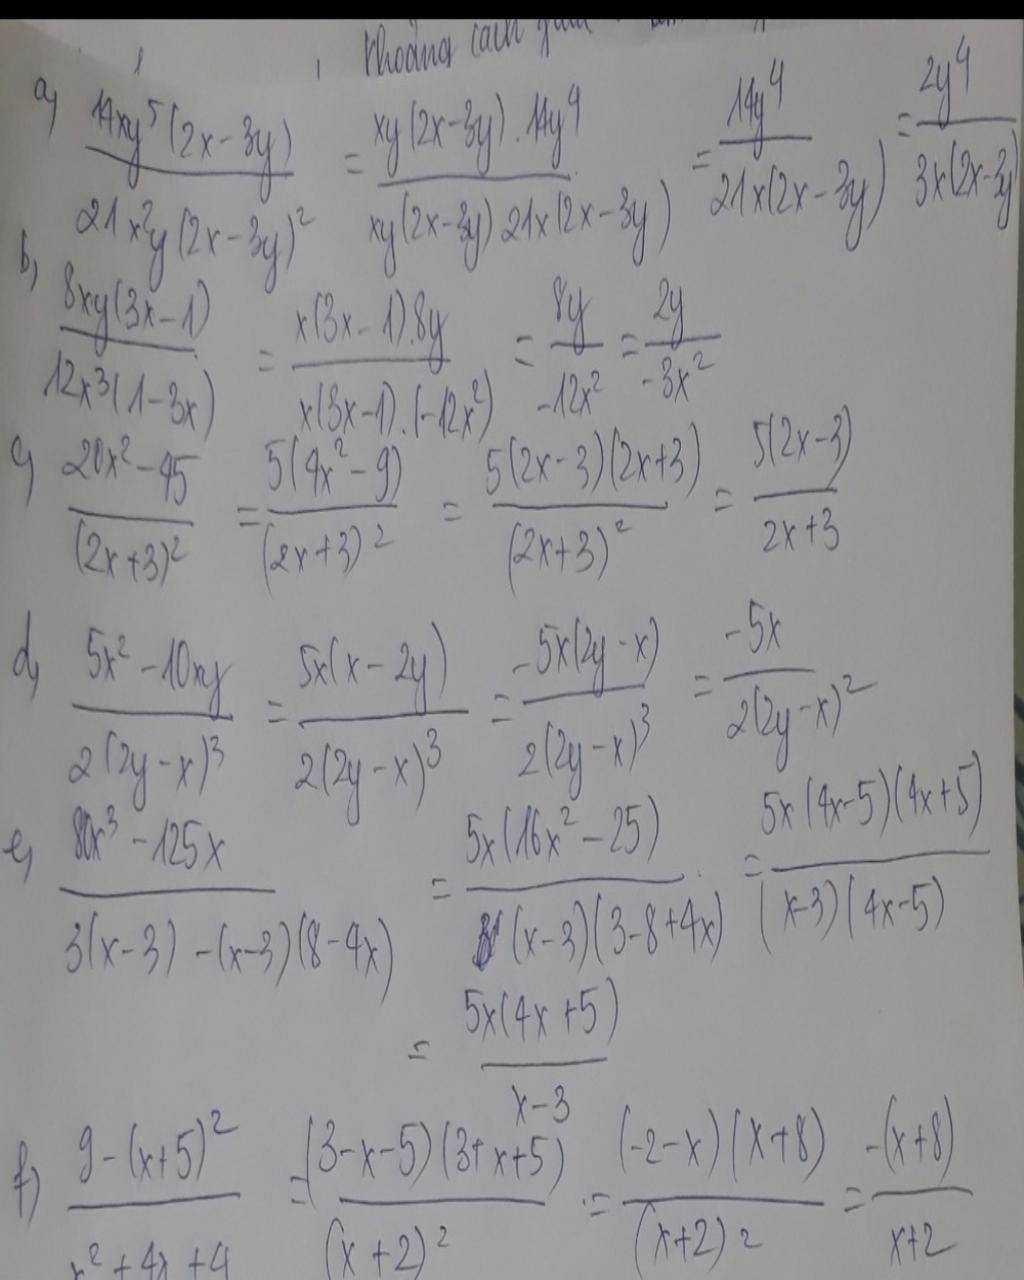 Khoảng cách
a) 14xy^5(2x-3y) / 21x^2y(2x-3y)^2 = xy(2x-3y).14y^4 / xy(2x-3y)21x(2x-3y) = 14y^4 / 21x(2x-3y) = 2y^4 / 3x(2x-3y)
b) 8xy(3x-1) / 12x^3(1-3x) = x(3x-1).8y / x(3x-1).(-12x^2) = 8y / -12x^2 = 2y / -3x^2
c) 20x^2-45 / (2x+3)^2 = 5(4x^2-9) / (2x+3)^2 = 5(2x-3)(2x+3) / (2x+3)^2 = 5(2x-3) / 2x+3
d) 5x^2-10xy / 2(2y-x)^3 = 5x(x-2y) / 2(2y-x)^3 = -5x(2y-x) / 2(2y-x)^3 = -5x / 2(2y-x)^2
e) 80x^3-125x / 3(x-3)-(x-3)(8-4x) = 5x(16x^2-25) / (x-3)(3-8+4x) = 5x(4x-5)(4x+5) / (x-3)(4x-5)
= 5x(4x+5) / x-3
f) 9-(x+5)^2 / x^2+4x+4 = (3-x-5)(3+x+5) / (x+2)^2 = (-2-x)(x+8) / (x+2)^2 = -(x+8) / x+2